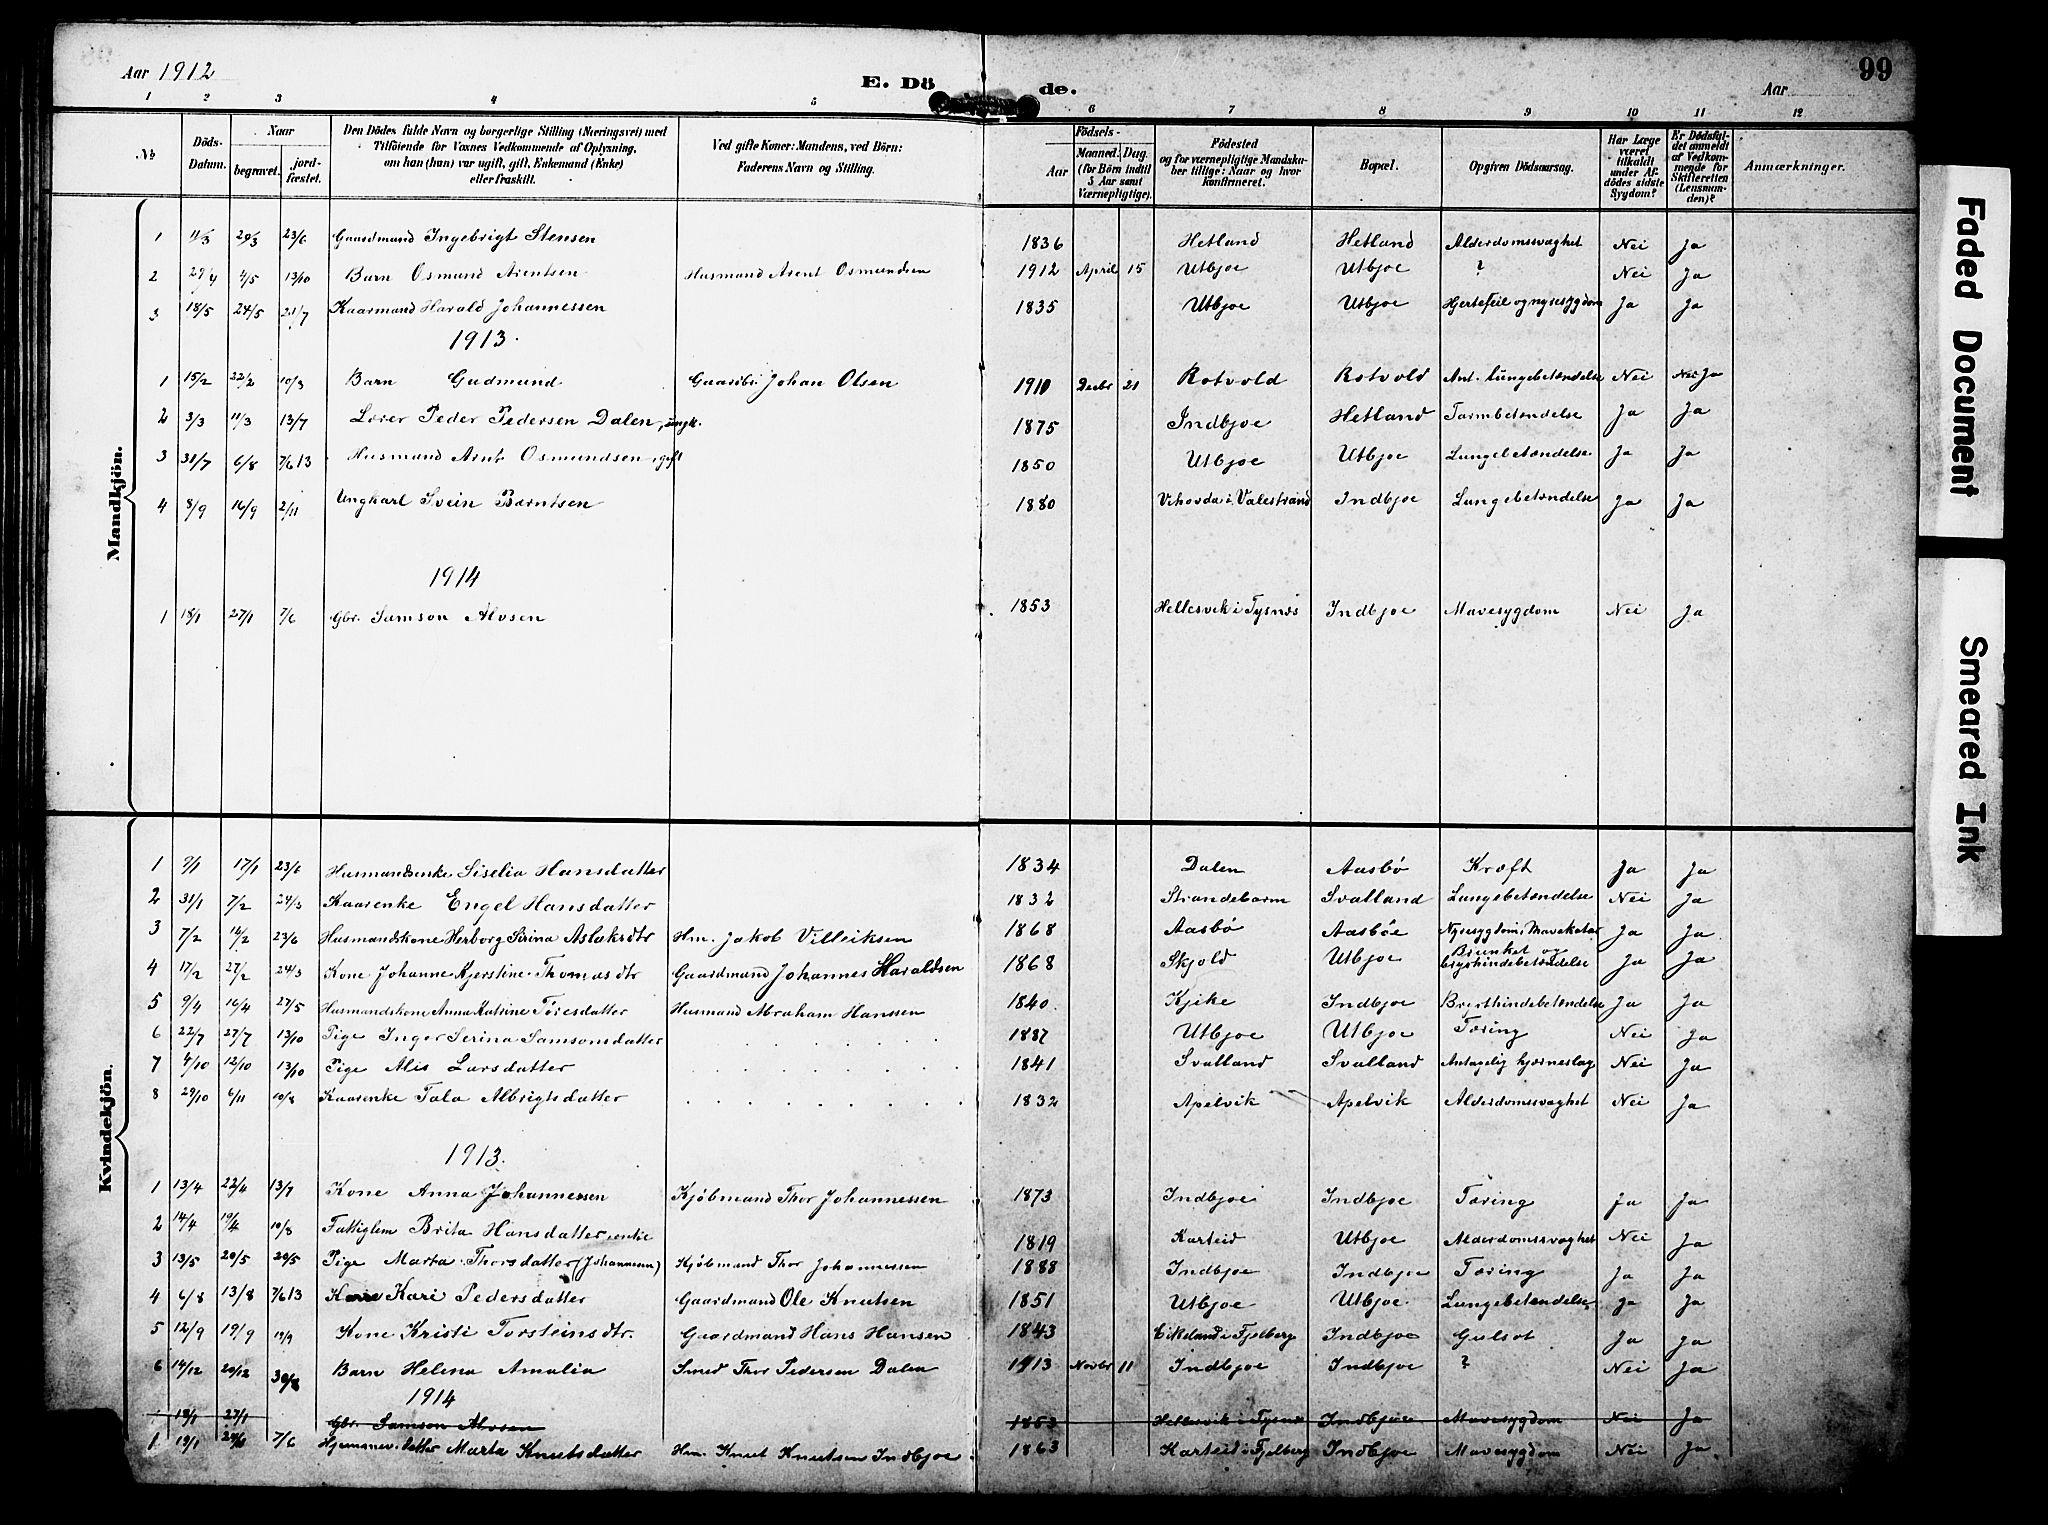 Aar 1912
E. Dö de.
Aar
99
1 2 3 4 5 6 7 8 9 10 11 12
№
Döds-Datum.
Naar
begravet.
jord-fæstet.
Den Dödes fulde Navn og borgerlige Stilling (Næringsvei) med Tilföiende for Voxnes Vedkommende af Oplysning, om han (hun) var ugift, gift, Enkemand (Enke) eller fraskilt.
Ved gifte Koner: Mandens, ved Börn: Faderens Navn og Stilling.
Födsels-
Aar
Maaned. Dag.
(for Börn indtil 5 Aar samt Værnepligtige).
Födested og for værnepligtige Mandskaber tillige: Naar og hvor konfirmeret.
Bopæl.
Opgiven Dödsaarsag.
Har Læge været tilkaldt under Afdödes sidste Sygdom?
Er Dödsfaldet anmeldt af Vedkommende for Skifteretten (Lensmanden)?
Anmærkninger.
Mandkjön.
1 11/3 29/3 23/6 Gaardmand Ingebrigt Stensen 1836 Hetland Hetland Alderdomssvaghet Nei Ja
2 29/4 4/5 13/10 Barn Osmund Arentsen Husmand Arent Osmundsen 1912 April 15 Utbjoe Utbjoe ? Nei Ja
3 18/5 24/5 21/7 Kaarmand Harald Johannessen 1835 Utbjoe Utbjoe Hertefeil og nyresygdom Ja Ja
1913.
1 15/2 22/2 10/3 Barn Gudmund Gaardbr. Johan Olsen 1910 Decbr 21 Rotvold Rotvold Ant. Lungebetændelse Nei Nei Ja
2 3/3 11/3 13/7 Lærer Peder Pedersen Dalen, ungk. 1875 Indbjoe Hetland Tarmbetændelse Ja Ja
3 31/7 6/8 7/6 13 Husmand Arnt Osmundsen, gift 1850 Utbjoe Utbjoe Lungebetændelse Ja Ja
4 8/9 16/9 2/11 Ungkarl Svein Berntsen 1880 Vihovda i Valestrand Indbjoe Lungebetændelse Ja Ja
1914
1 18/1 27/1 7/6 Gbr. Samson Alvsen 1853 Hellesvik i Tysnes Indbjoe Mavesygdom Nei Ja
Kvindekjön.
1 9/1 17/1 23/6 Husmandsenke Siselia Hansdatter 1834 Dalen Aasbø Kræft Ja Ja
2 31/1 7/2 24/3 Kaarenke Engel Hansdatter 1832 Strandebarm Svalland Lungebetændelse Nei Ja
3 7/2 14/2 23/6 Husmandskone Herborg Serina Aslaksdtr Hm. Jakob Villeiksen 1868 Aasbø Aasbøe Nyresygdom, Mavekatar Ja Ja
4 17/2 27/2 24/3 Kone Johanne Kjerstine Thomasdtr Gaardmand Johannes Haraldsen 1868 Skjold Utbjoe og brysthindebetændelse Ja Ja
5 9/4 16/4 27/5 Husmandskone Anna Katrine Toresdatter Husmand Abraham Hanssen 1840. Kjike Indbjoe Brysthindebetændelse Ja Ja
6 22/7 27/7 13/10 Pige Inger Serina Samsonsdatter 1887 Utbjoe Utbjoe Tæring Nei Ja
7 4/10 12/10 13/10 Pige Alis Larsdatter 1841 Svalland Svalland Antagelig hjærneslag Nei Ja
8 29/10 6/11 10/8 Kaarenke Tala Albrigtsdatter 1832 Apelvik Apelvik Alderdomssvaghet Nei Ja
1913.
1 13/4 22/4 13/7 Kone Anna Johannessen Kjøbmand Thor Johannessen 1873 Indbjoe Indbjoe Tæring Ja Ja
2 14/4 19/4 10/8 Fattiglem Brita Hansdatter, enke 1819 Karteid Utbjoe Alderdomssvaghet Nei Ja
3 13/5 20/5 20/5 Pige Marta Thorsdatter (Johannessen) Kjøbmand Thor Johannessen 1888 Indbjoe Indbjoe Tæring Ja Ja
4 6/8 13/8 7/6 13 Kone Kari Pedersdatter Gaardmand Ole Knutsen 1851 Utbjoe Utbjoe. Lungebetændelse Ja Ja
5 12/9 19/9 19/9 Kone Kristi Torsteinsdtr. Gaardmand Hans Hansen 1843 Eikeland i Fjelberg Indbjoe Gulsot Ja Ja
6 14/12 20/12 30/8 Barn Helena Amalia Smed Thor Pedersen Dalen 1913 Novbr 11 Indbjoe Indbjoe ? Nei Ja
1914
18/1 27/1 Gbr. Samson Alvsen 1853 Hellesvik i Tysnes Indbjoe Mavesygdom Nei Ja
1 19/1 7/6 Marta Knutsdatter Hm. Knut Knutsen Indbjoe. 1863 Karteid i Fjelberg Indbjoe Mavesygdom Nei Ja
Faded Document
Smeared Ink